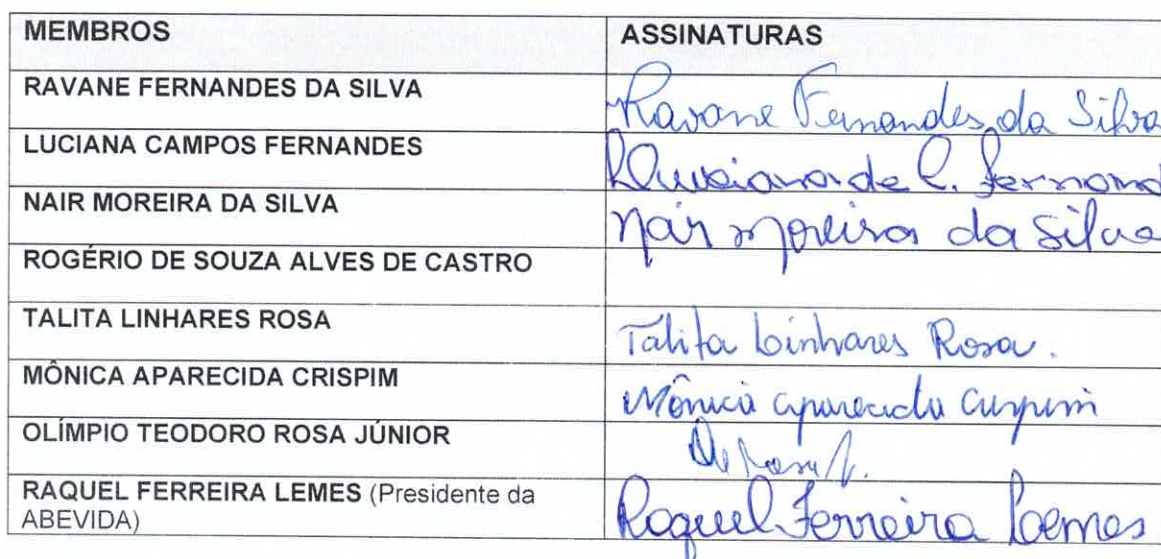 MEMBROS ASSINATURAS
RAVANE FERNANDES DA SILVA Ravane Fernandes da Silva
LUCIANA CAMPOS FERNANDES Luciana de C. Fernand
NAIR MOREIRA DA SILVA Nair Moreira da Silva
ROGÉRIO DE SOUZA ALVES DE CASTRO
TALITA LINHARES ROSA Talita Linhares Rosa.
MÔNICA APARECIDA CRISPIM Mônica Aparecida Crispim
OLÍMPIO TEODORO ROSA JÚNIOR
RAQUEL FERREIRA LEMES (Presidente da Raquel Ferreira Lemes
ABEVIDA)